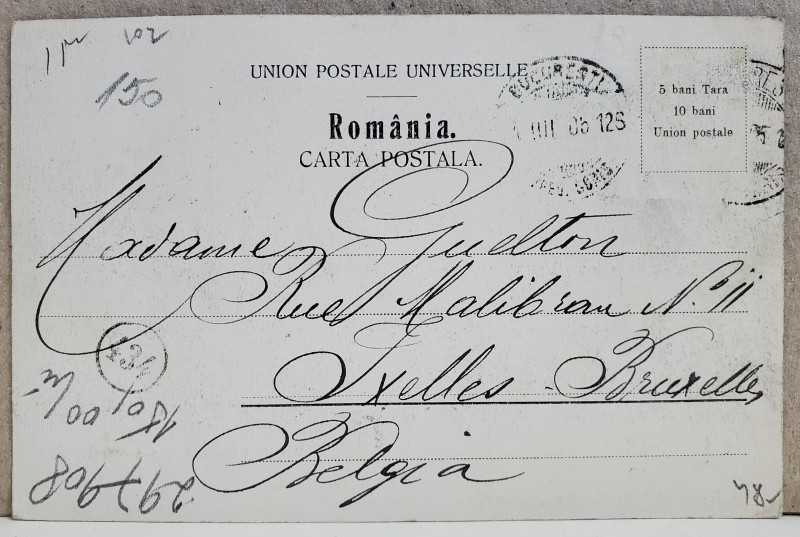 150
UNION POSTALE UNIVERSELLE
România.
CARTA POSTALA.
BUCURESTI
5 bani Tara
10 bani
Union postale
Madame Guelton
Rue Malibran No 11
Ixelles - Bruxelles
Belgia